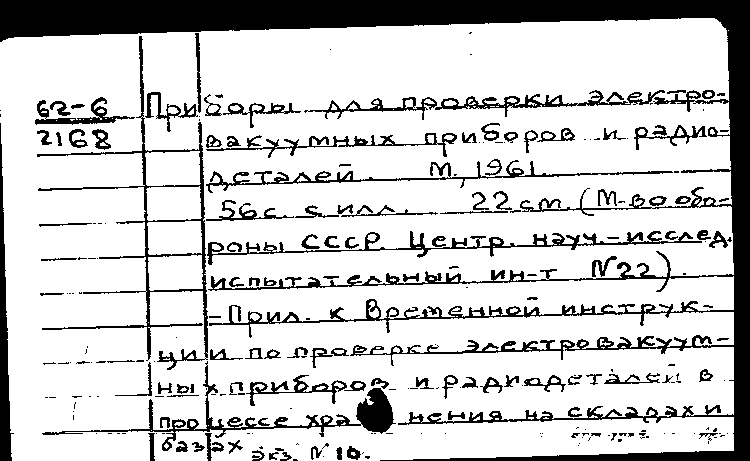 62-6
2168
Приборы для проверки электро-
вакуумных приборов и радио-
деталей. М., 1961.
56 с. с илл. 22 см. (М-во обо-
роны СССР. Центр. науч.-исслед.
испытательный ин-т N22).
-Прил. к Временной инструк-
ции по проверке электровакуум-
ных приборов и радиодеталей в
процессе хранения на складах и
базах экз. N10.